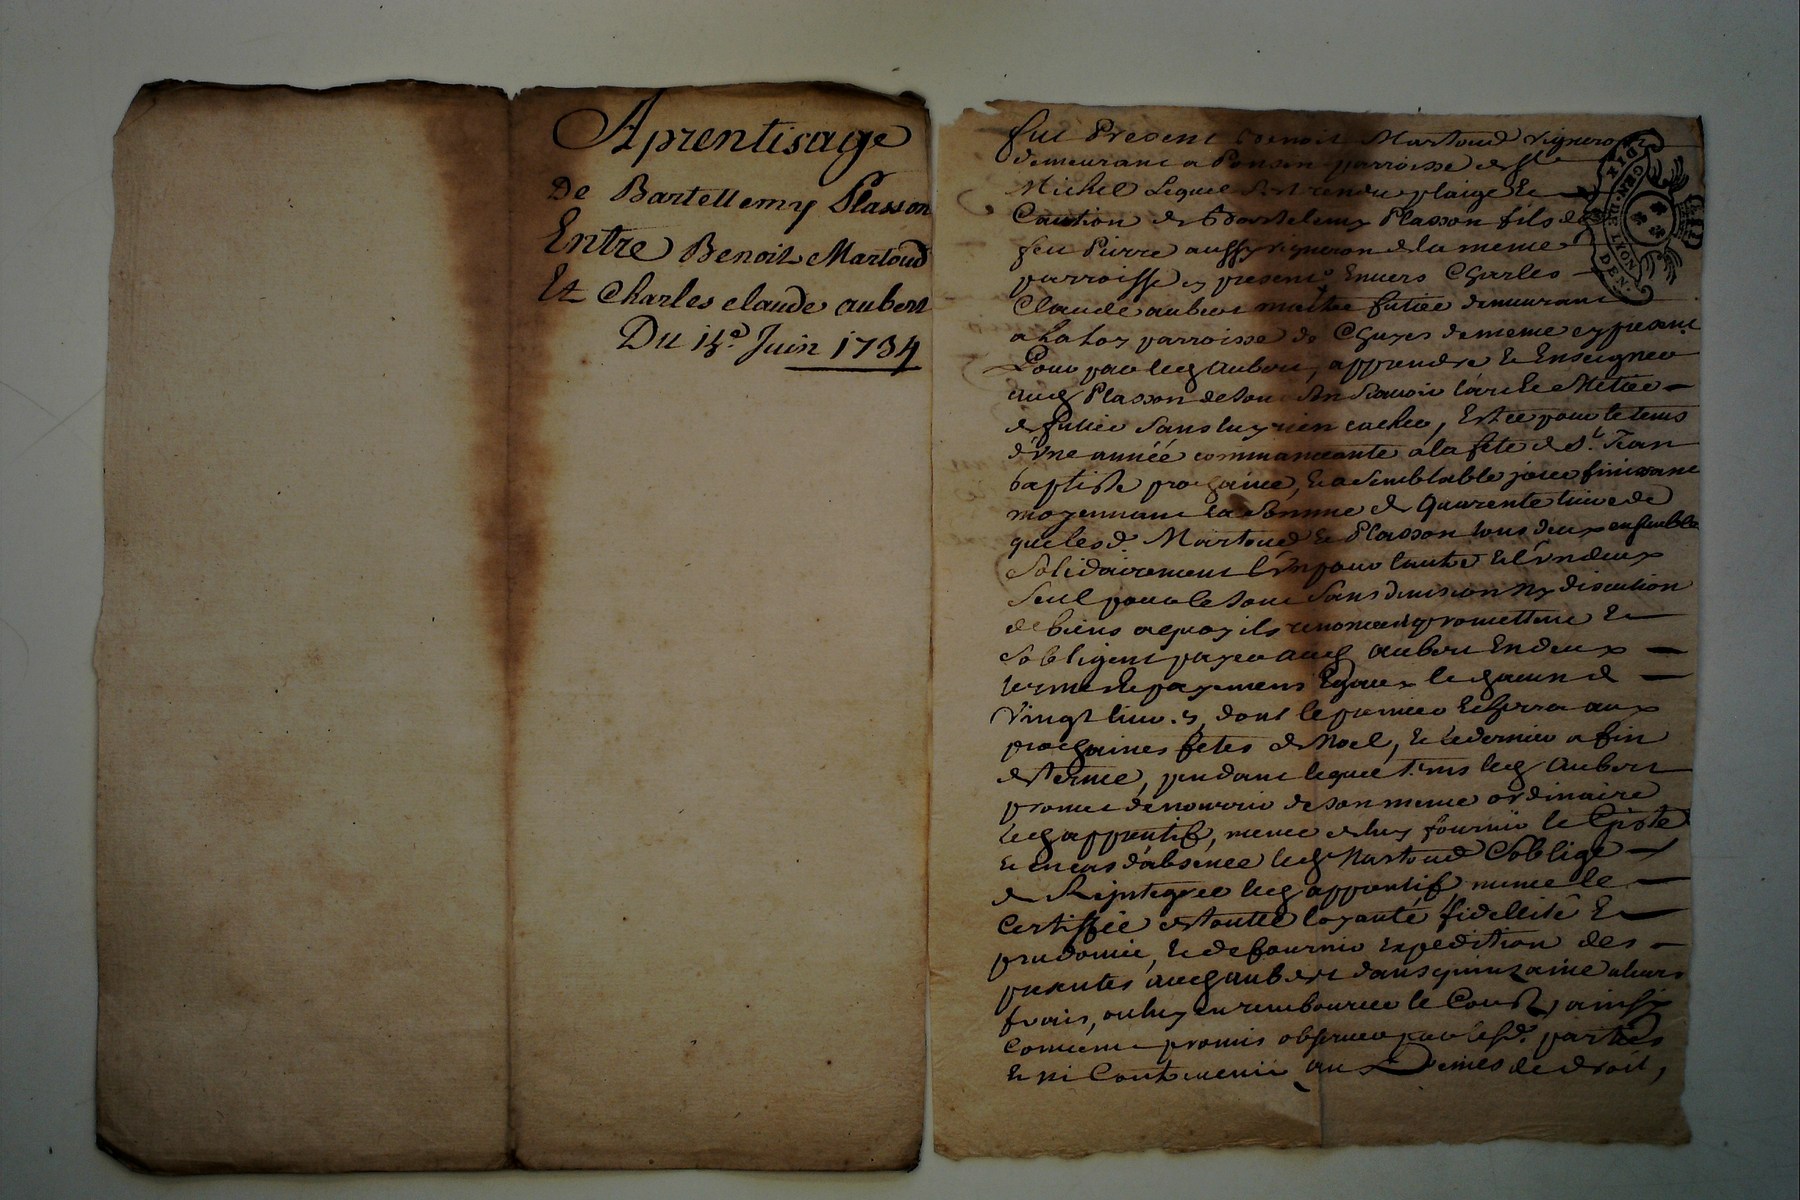 Aprentisage
De Bartellemy Plasson
Entre Benoit Martoud
Et Charles claude aubert
Du 14e. Juin 1734
fut Present Benoit Martoud vigneron
demeurant a Ponson parroisse de St
Michel Lequel s'est rendu plaige Et
Caution de Barthelemy Plasson fils de
feu Pierre aussy vigneron de la meme
parroisse present, Envers Charles
Claude aubert maitre futier demeurant
parroisse de meme
Pour par led aubert, apprendre Et Enseigner
aud Plasson de tout son scavoir l'art Et Metier
de futier sans luy rien cacher, Et ce pour le tems
d'vne année commancante a la fete de St. Jean
baptiste prochaine, Et a semblable jour finissant
moyennant la somme de Quarente livre de
que lesd. Martoud Et Plasson tous deux ensemble
solidairement l'vn pour l'autre Et l'vn deux
seul pour le tout sans division ny discution
de biens a quoy ils renoncent promettent Et
sobligent payer aud aubert En deux
terme Et payemens Egaux le chacun de
vingt livres, dont le premier Echerra aux
prochaines fetes de Noel, Et le dernier a fin
de terme, pendant lequel tems led Aubert
promet de nourrir de son meme ordinaire
led apprentif, meme de luy fournir le Giste
Et en cas d'absence led Martoud soblige
de Reintegrer led apprentif meme le
Certiffie de toutte loyauté, fidellité Et
prudomie, Et de fournir expedition des
presentes aud aubert dans quinzaine a leurs
frais, ou luy en rembourcer le Coust, ainsy
comme promis observer par lesd. parties
Et ni Contrevenir aux Peines de droit,
GEN. DE MON